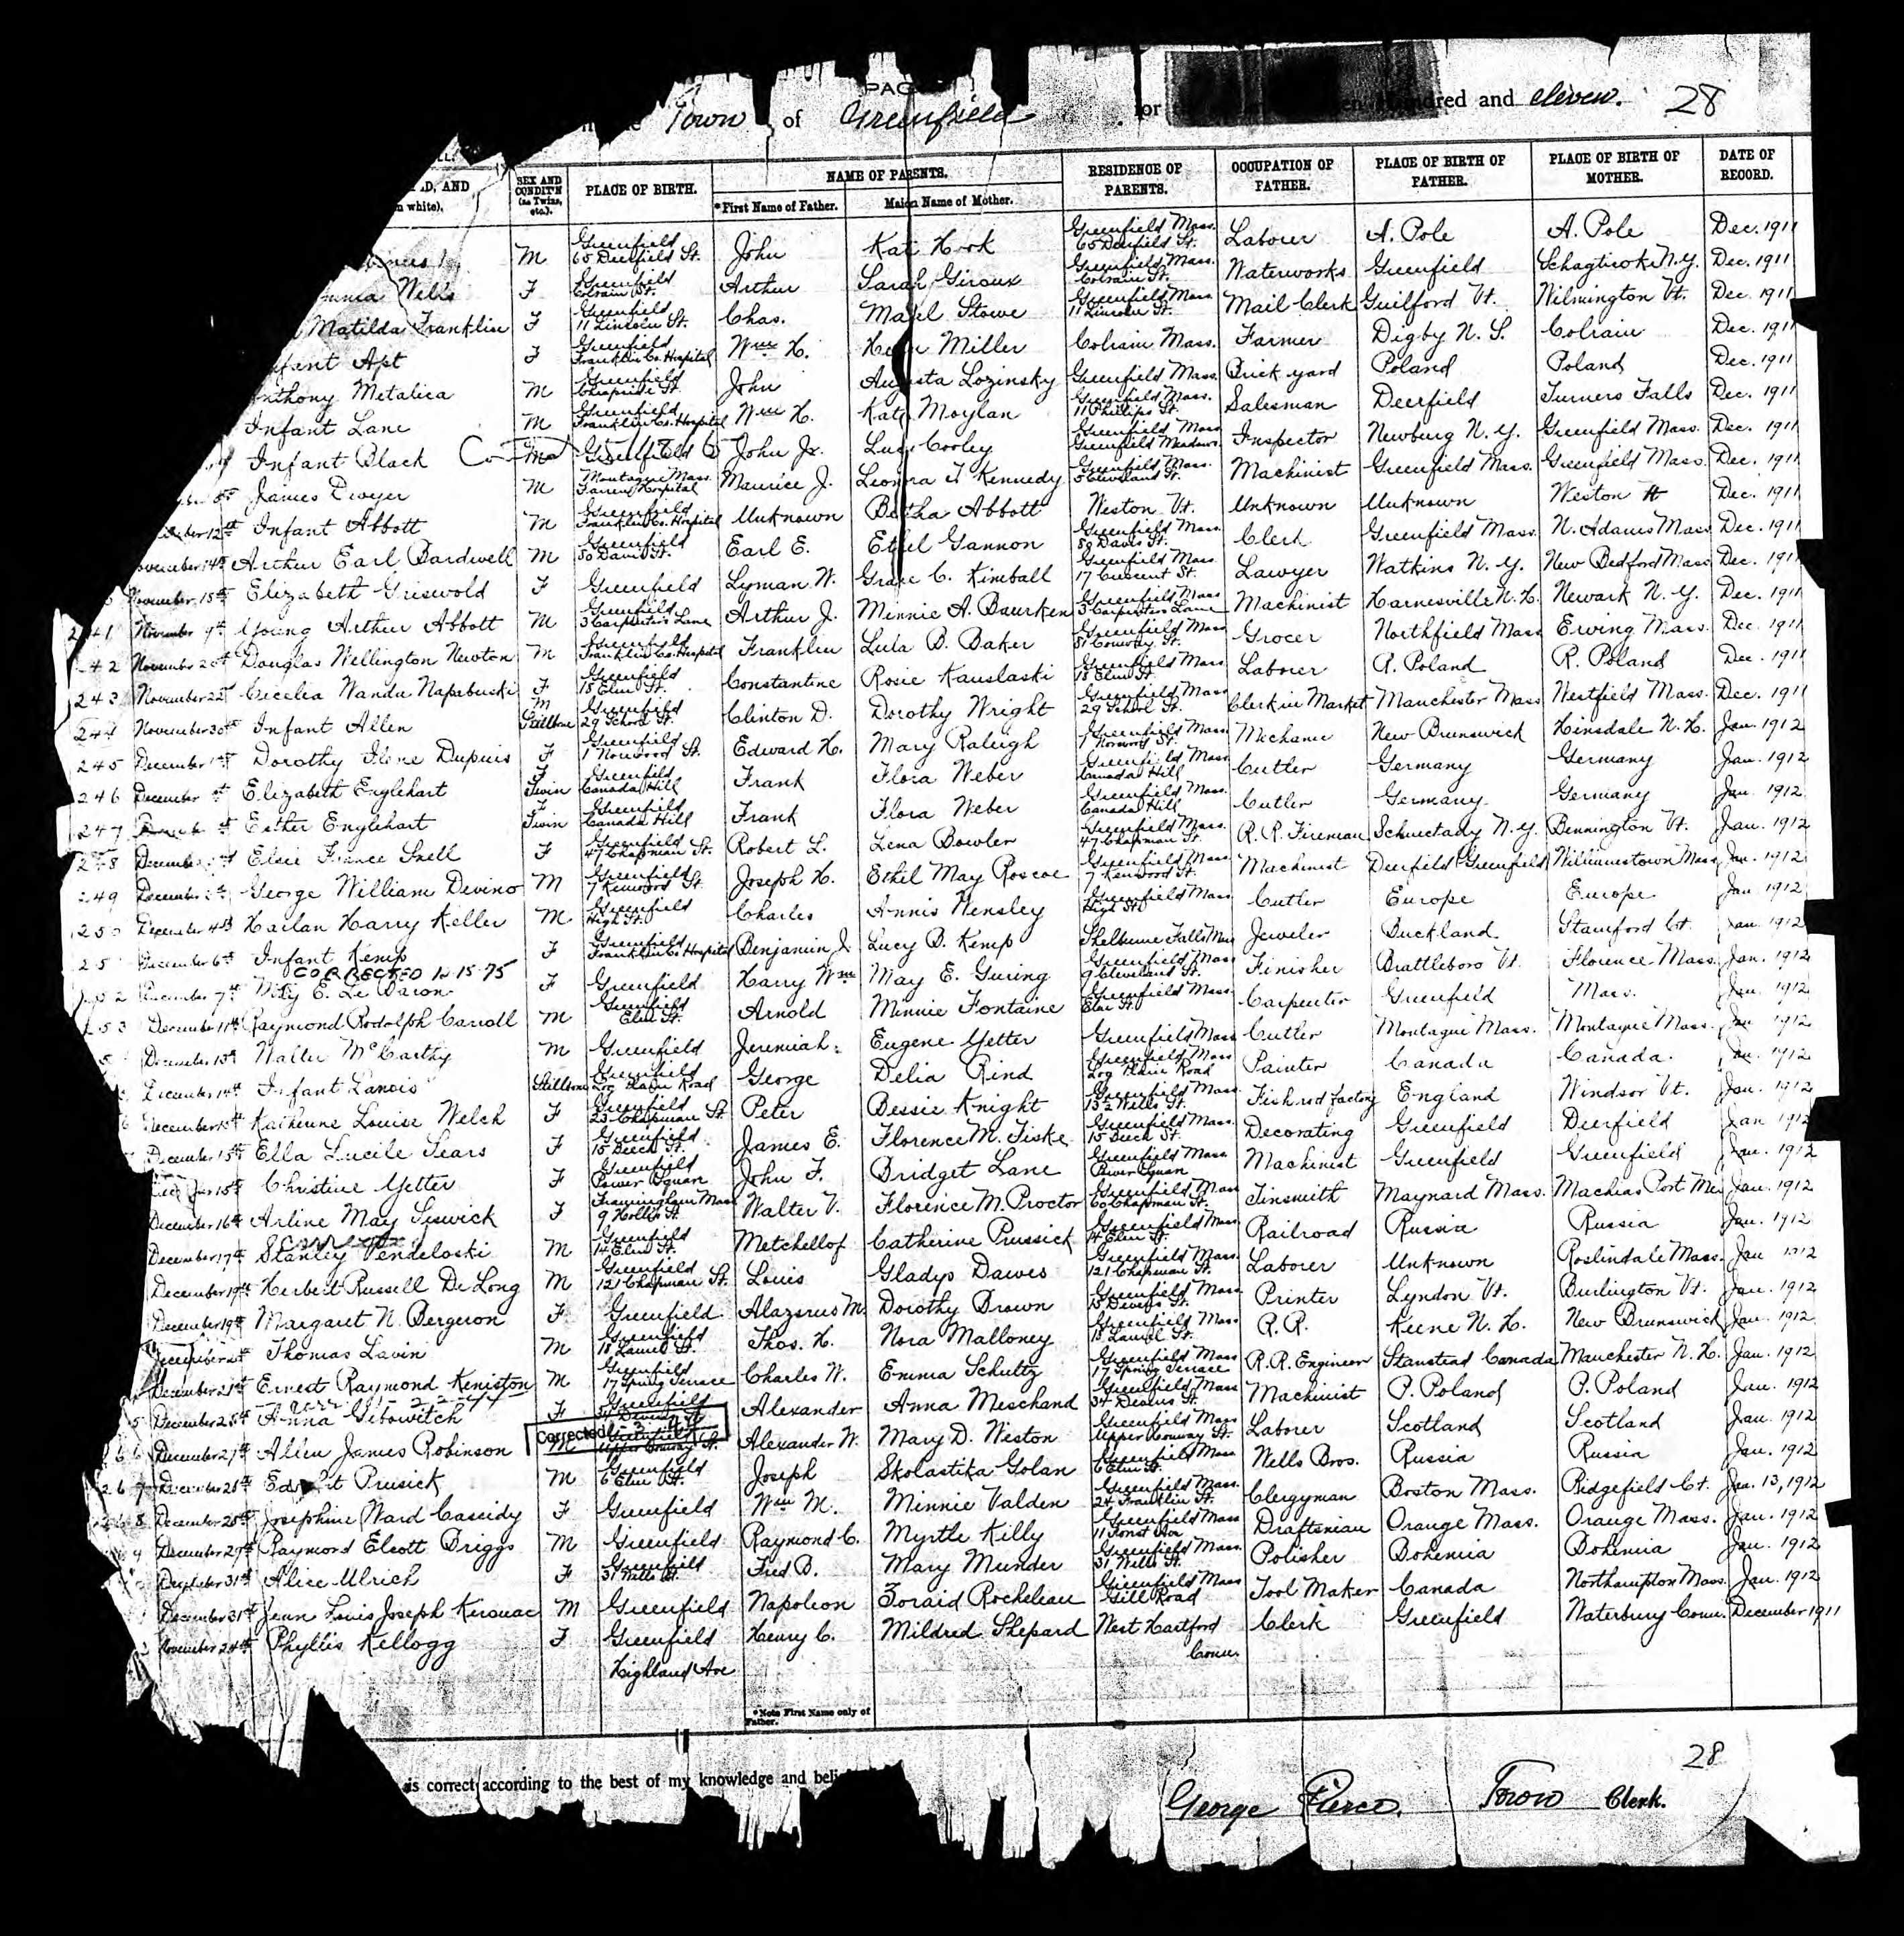 PAG
Town of Greenfield for hundred and eleven. 28
D, AND
n white).
SEX AND CONDIT'N (as Twins, etc.).
PLACE OF BIRTH.
NAME OF PARENTS.
*First Name of Father.
Maiden Name of Mother.
RESIDENCE OF PARENTS.
OCCUPATION OF FATHER.
PLACE OF BIRTH OF FATHER.
PLACE OF BIRTH OF MOTHER.
DATE OF RECORD.
M Greenfield 65 Deerfield St. John Kati Greenfield Mass. 65 Deerfield St. Laborer A. Pole A. Pole Dec. 1911
Wells F Greenfield Colrain St. Arthur Sarah Giroux Greenfield Mass. Colrain St. Waterworks Greenfield Schagticoke N.Y. Dec. 1911
Matilda Franklin F Greenfield 11 Lincoln St. Chas. Mabel Stowe Greenfield Mass. 11 Lincoln St. Mail Clerk Guilford Vt. Wilmington Vt. Dec. 1911
nfant Apt F Greenfield Franklin Co. Hospital Wm H. Miller Colrain Mass. Farmer Digby N. S. Colrain Dec. 1911
nthony Metalica M Greenfield Cheapside St. John Augusta Lozinsky Greenfield Mass. Brick yard Poland Poland Dec. 1911
Infant Lane M Greenfield Franklin Co. Hospital Wm H. Kate Moylan Greenfield Mass. 11 Phillips St. Salesman Deerfield Turners Falls Dec. 1911
Infant Black M Greenfield John Jr. Lucy Corley Greenfield Mass. Greenfield Meadows Inspector Newburg N. Y. Greenfield Mass. Dec. 1911
James Dwyer M Montague Mass. Farren Hospital Maurice J. Leonora Kennedy Greenfield Mass. 5 Cleveland St. Machinist Greenfield Mass. Greenfield Mass. Dec. 1911
12th Infant Abbott M Greenfield Franklin Co. Hospital Unknown Bertha Abbott Weston Vt. Unknown Unknown Weston Vt Dec. 1911
November 14th Arthur Earl Bardwell M Greenfield 50 Davis St. Earl E. Ethel Gannon Greenfield Mass. Davis St. Clerk Greenfield Mass. N. Adams Mass Dec. 1911
November 15th Elizabeth Griswold F Greenfield Lyman W. Grace C. Kimball Greenfield Mass. 17 Crescent St. Lawyer Watkins N. Y. New Bedford Mass Dec. 1911
241 November 9th Young Arthur Abbott M Greenfield 3 Carpenter's Lane Arthur J. Minnie A. Baurken Greenfield Mass 3 Carpenters Lane Machinist Harnesville N. H. Newark N. Y. Dec. 1911
242 November 20th Douglas Wellington Newton M Greenfield Franklin Co. Hospital Franklin Lula B. Baker Greenfield Mass 81 Conway St. Grocer Northfield Mass Erving Mass. Dec. 1911
243 November 22nd Cecelia Wanda Napabuski F Greenfield 18 Elm St. Constantine Rosie Kauslaski Greenfield Mass 18 Elm St. Laborer R. Poland R. Poland Dec. 1911
244 November 30th Infant Allen M Stillborn Greenfield 29 School St. Clinton D. Dorothy Wright Greenfield Mass 29 School St. Clerk in Market Manchester Mass Westfield Mass. Dec. 1911
245 December 1st Dorothy Ilene Dupuis F Greenfield 1 Norwood St. Edward H. Mary Raleigh Greenfield Mass. 1 Norwood St. Mechanic New Brunswick Hinsdale N. H. Jan. 1912
246 December 1st Elizabeth Englehart F Twin Greenfield Canada Hill Frank Flora Weber Greenfield Mass. Canada Hill Cutler Germany Germany Jan. 1912
247 Esther Englehart F Twin Greenfield Canada Hill Frank Flora Weber Greenfield Mass. Canada Hill Cutler Germany Germany Jan. 1912
248 December Elsie France Snell F Greenfield 47 Chapman St. Robert L. Lena Bowler Greenfield Mass. 47 Chapman St. R. R. Fireman Schnectady N. Y. Bennington Vt. Jan. 1912
249 December George William Devino M Greenfield 7 Kenwood St. Joseph H. Ethel May Roscoe Greenfield Mass 7 Kenwood St. Machinist Deerfield Greenfield Williamstown Mass Jan. 1912
250 December 4th Harlan Harry Keller M Greenfield High St. Charles Annis Hensley Greenfield Mass High St. Cutler Europe Europe Jan 1912
25 December 6th Infant Kemp F Greenfield Franklin Co. Hospital Benjamin J. Lucy B. Kemp Shelburne Falls Mass Jeweler Buckland Stamford Ct. Jan. 1912
CORRECTED 12-15-75
252 December 7th E. Le Baron F Greenfield Harry Wm May E. Guring Greenfield Mass 9 Cleveland St. Finisher Brattleboro Vt. Florence Mass. Jan. 1912
253 December 11th Raymond Rodolph Carroll M Greenfield Elm St. Arnold Minnie Fontaine Greenfield Mass Elm St. Carpenter Greenfield Mass. Jan. 1912
5 December 13th Walter McCarthy M Greenfield Jeremiah Eugene Yetter Greenfield Mass Cutler Montague Mass. Montague Mass. Jan 1912
December 14th Infant Lanois Stillborn Greenfield Log Plain Road George Delia Rind Greenfield Mass Log Plain Road Painter Canada Canada. Jan. 1912
December 15th Katherine Louise Welch F Greenfield 23 Chapman St Peter Bessie Knight Greenfield Mass. Wells St. Fish rod factory England Windsor Vt. Jan. 1912
December 15th Ella Lucile Sears F Greenfield 15 Beech St. James E. Florence M. Fiske Greenfield Mass. 15 Beech St. Decorating Greenfield Deerfield Jan 1912
15th Christine Yetter F Greenfield Power Square John F. Bridget Lane Greenfield Mass Power Square Machinist Greenfield Greenfield Jan. 1912
December 16th Arline May Seswick F Framingham Mass 9 Hollis St. Walter V. Florence M. Proctor Greenfield Mass 60 Chapman St. Tinsmith Maynard Mass. Machias Port Me Jan. 1912
December 17th Stanley Pendeloski M Greenfield 14 Elm St. Metchellof Catherine Prussick Greenfield Mass 14 Elm St. Railroad Russia Russia Jan. 1912
December 19th Herbert Russell De Long M Greenfield 121 Chapman St. Louis Gladys Dawes Greenfield Mass. 121 Chapman St. Laborer Unknown Roslindale Mass. Jan 1912
December 19th Margaret N. Bergeron F Greenfield Alazarus M. Dorothy Brown Greenfield Mass 15 Devens St. Printer Lyndon Vt. Burlington Vt. Jan. 1912
December Thomas Lavin M Greenfield 18 Laurel St. Thos. H. Nora Malloney Greenfield Mass 18 Laurel St. R. R. Keene N. H. New Brunswick Jan. 1912
December 21st Ernest Raymond Keniston M Greenfield 17 Spring Terrace Charles W. Emma Schultz Greenfield Mass 17 Spring Terrace R.R. Engineer Stanstead Canada Manchester N. H. Jan. 1912
5 December 25th Anna Gibowitch F Greenfield 34 Devens St Alexander Anna Meschand Greenfield Mass 34 Devens St. Machinist P. Poland P. Poland Jan. 1912
Corrected
66 December 27th Allen James Robinson M Greenfield Upper Conway St. Alexander W. Mary D. Weston Greenfield Mass Upper Conway St. Laborer Scotland Scotland Jan. 1912
267 December 28th Prusick M Greenfield 6 Elm St. Joseph Skolastika Golan Greenfield Mass 6 Elm St. Wells Bros. Russia Russia Jan. 1912
268 December 28th Josephine Ward Cassidy F Greenfield Wm M. Minnie Valden Greenfield Mass. 24 Franklin St. Clergyman Boston Mass. Ridgefield Ct. Jan. 13, 1912
9 December 29th Raymond Elcott Briggs M Greenfield Raymond C. Myrtle Killy Greenfield Mass 11 Ave Draftsman Orange Mass. Orange Mass. Jan. 1912
December 31st Alice Ulrich F Greenfield 31 Wells St. Fred B. Mary Munder Greenfield Mass. 31 Wells St. Polisher Bohemia Bohemia Jan. 1912
December 31st Jean Louis Joseph Kerouac M Greenfield Napoleon Zoraid Rocheleau Greenfield Mass Gill Road Tool Maker Canada Northampton Mass. Jan. 1912
November 24th Phyllis Kellogg F Greenfield Highland Ave Henry C. Mildred Shepard West Hartford Conn. Clerk Greenfield Waterbury Conn. December 1911
*Note First Name only of Father.
28
is correct according to the best of my knowledge and beli
George Pierce. Town Clerk.